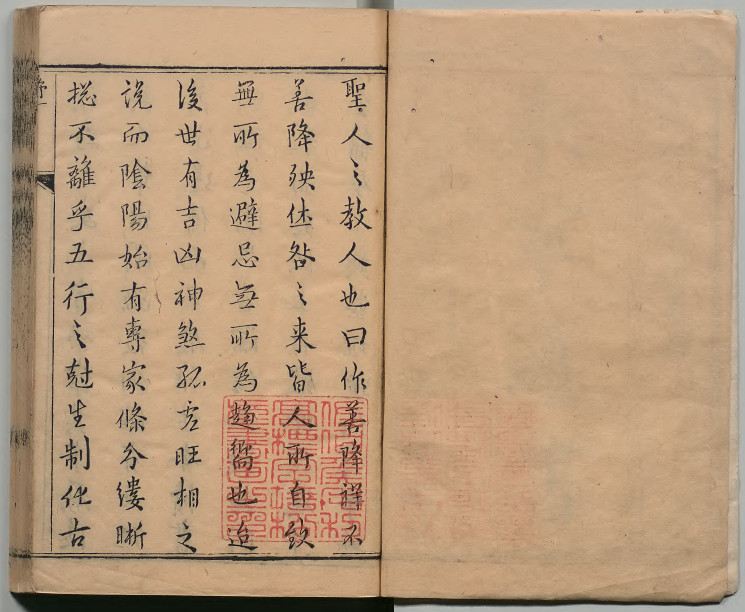 聖人之教人也曰作善降祥不
善降殃休咎之来皆人所自致
無所為避忌無所為趨嚮也迨
後世有吉凶神煞孤虛旺相之
說而陰陽始有專家條分縷晰
揔不離乎五行之尅生制化古
序一